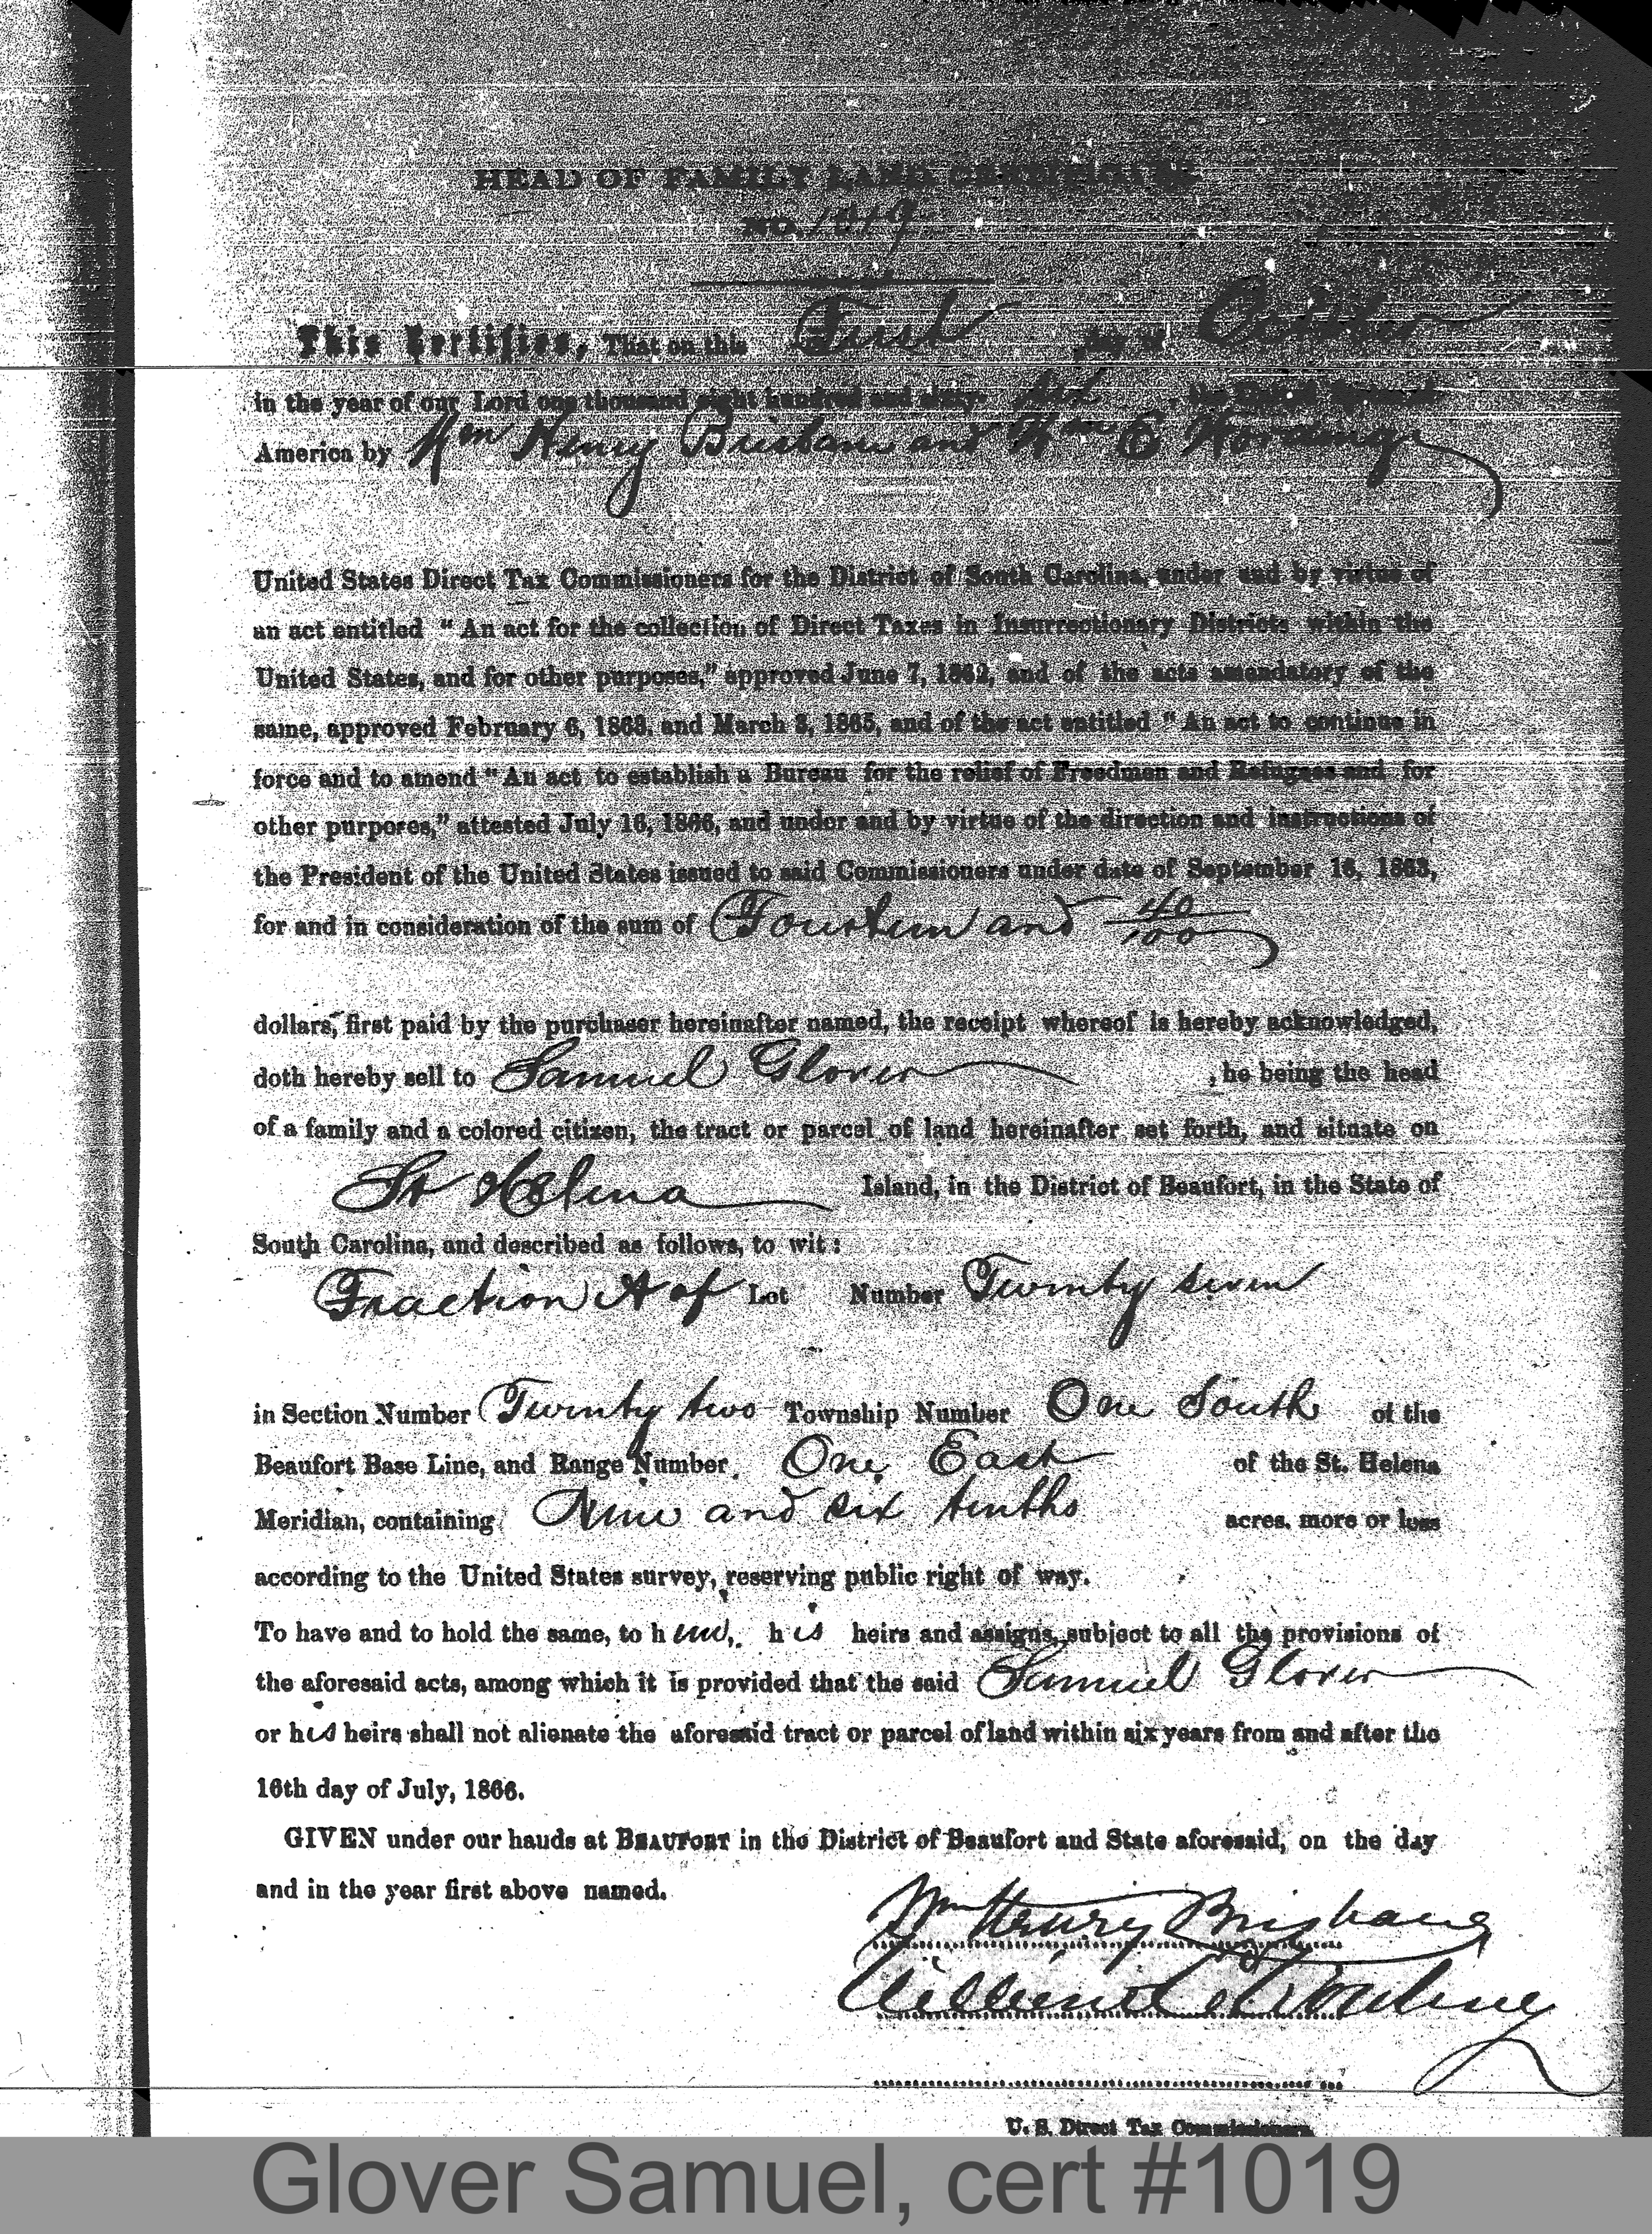 HEAD OF FAMILY LAND CERTIFICATE
NO. 1019.
This Certifies, That on this First day of October
in the year of our Lord one thousand eight hundred and sixty- six, the United States of
America by Wm Henry Brisbane and Wm E Wording
United States Direct Tax Commissioners for the District of South Carolina, under and by virtue of
an act entitled "An act for the collection of Direct Taxes in Insurrectionary Districts within the
United States, and for other purposes," approved June 7, 1862, and of the acts amendatory of the
same, approved February 6, 1863, and March 3, 1865, and of the act entitled "An act to continue in
force and to amend "An act to establish a Bureau for the relief of Freedmen and Refugees and for
other purpores," attested July 16, 1866, and under and by virtue of the direction and instructions of
the President of the United States issued to said Commissioners under date of September 16, 1863,
for and in consideration of the sum of Fourteen and 40/100
dollars, first paid by the purchaser hereinafter named, the receipt whereof is hereby acknowledged,
doth hereby sell to Samuel Glover, he being the head
of a family and a colored citizen, the tract or parcel of land hereinafter set forth, and situate on
St Helena Island, in the District of Beaufort, in the State of
South Carolina, and described as follows, to wit:
Fraction A of Lot Number Twenty seven
in Section Number Twenty two Township Number One South of the
Beaufort Base Line, and Range Number One East of the St. Helena
Meridian, containing Nine and six tenths acres, more or less
according to the United States survey, reserving public right of way.
To have and to hold the same, to him, his heirs and assigns, subject to all the provisions of
the aforesaid acts, among which it is provided that the said Samuel Glover
or his heirs shall not alienate the aforesaid tract or parcel of land within six years from and after the
16th day of July, 1866.
GIVEN under our hauds at BEAUFORT in the District of Beaufort and State aforesaid, on the day
and in the year first above named.
Wm Henry Brisbane
William E Wording
U. S. Direct Tax Commissioners.
Glover Samuel, cert #1019